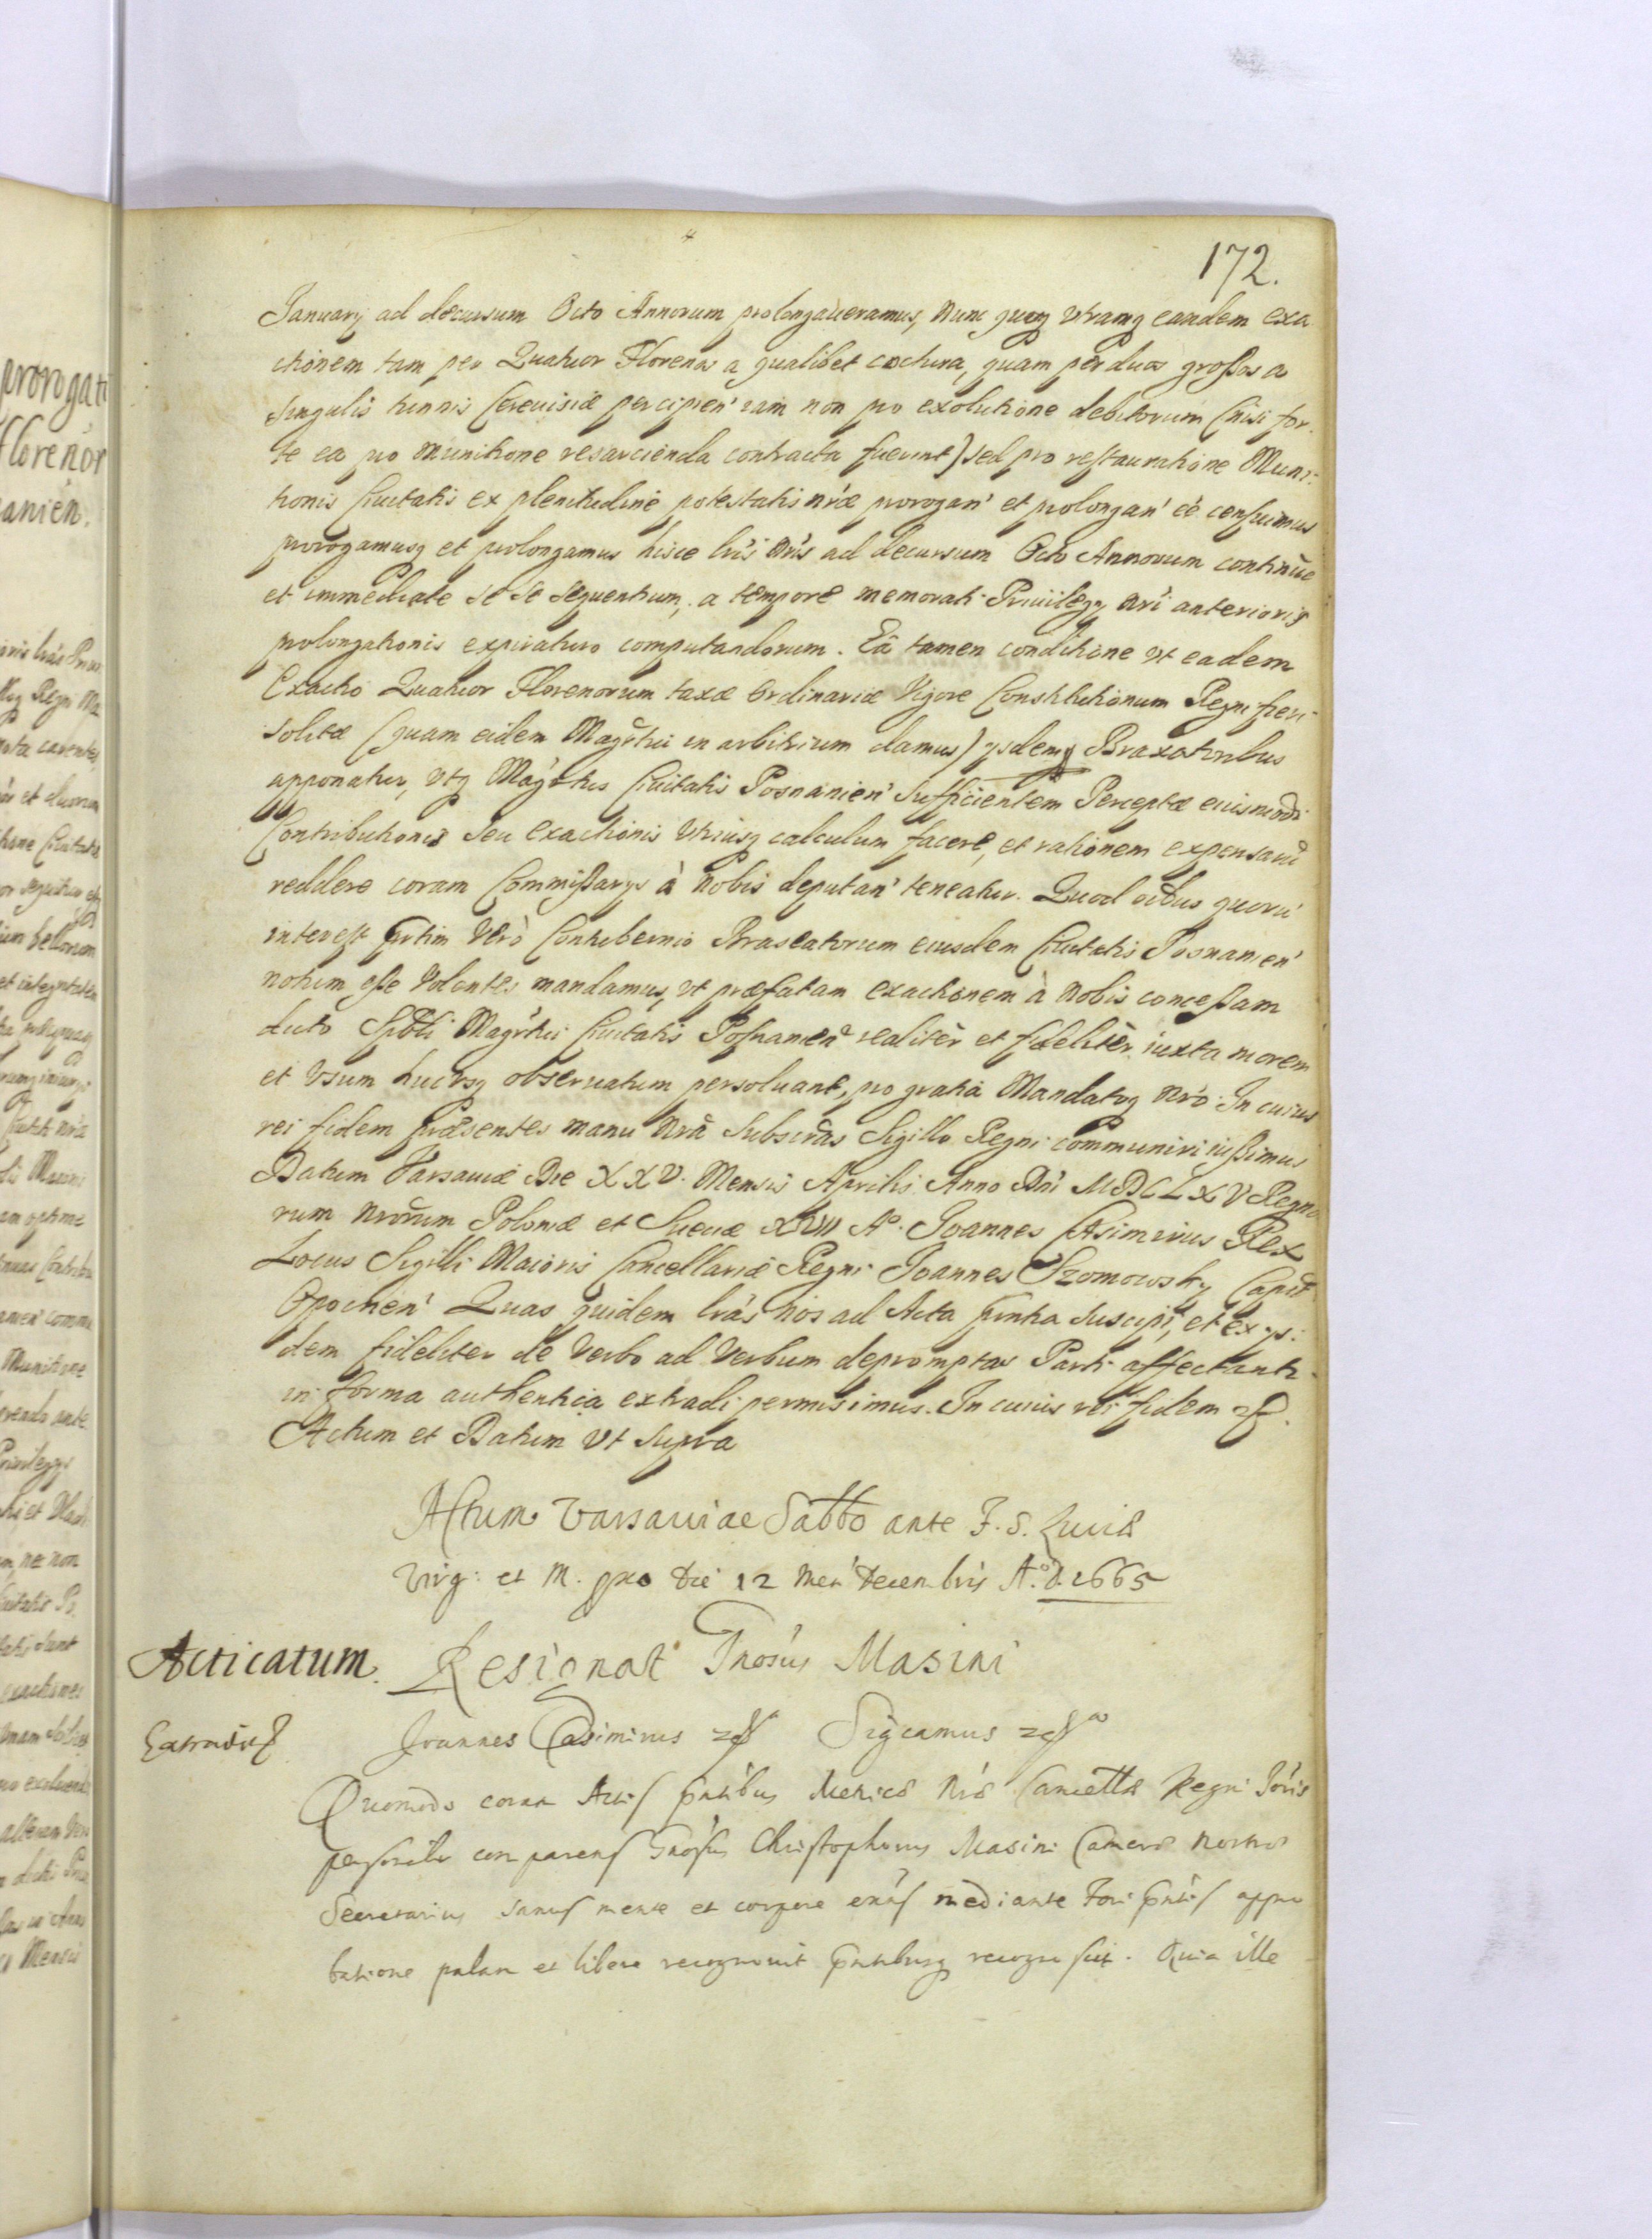 172.
January ad decursum Octo Annorum prolongaueramus, Nunc quoq vtramq eandem exa
ctionem tam per Quatuor Florenos a qualibet coctura, quam per duos grossos a
singulis tunnis Cereuisiæ percipien' iam non pro exolutione debitorum (nisi for-
te ea pro munitione resarcienda contracta fuerint) sed pro restauratione Muni-
tionis Ciuitatis ex plenitudine potestatis nr̃æ prorogan' et prolongan' eẽ censuimus
prorogamusq et prolongamus hisce lr̃is nr̃is ad decursum Octo Annorum continuè
et immediate se se sequentium, a tempore memorati Priuilegy nr̃i anterioris
prolongationis expiraturo computandorum. Eâ tamen conditione vt eadem
Exactio Quatuor Florenorum taxæ ordinariæ Vigore Constitutionum Regni fieri
solitæ (quam eidem Magr̃tui in arbitrium damus) ysdemq Braxatoribus
apponatur, vtq Magr̃tus Ciuitatis Posnanien' sufficientem Perceptæ euismodi
Contributionis seu exactionis vtriusq calculum facere, et rationem expensarũ
reddere coram Commissarys à nobis deputan' teneatur. Quod oĩbus quorũ
interest prt̃im verò Contubernio Braseatorum eiusdem Ciuitatis Posnanien'
notum esse volentes mandamus, vt præfatam exactionem à nobis concessam
dicto Sptt̃li Magr̃tui Ciuitatis Posnanien̄ realiter et fideliter iuxta morem
et vsum hucvsq obseruatum persoluant, pro gratia Mandatoq nr̃o. In cuius
rei fidem præsentes manu nr̃a subscr̃as Sigillo Regni communiri iussimus
Datum Varsauiæ Die XXV. Mensis Aprilis Anno Dñi MDCLXV Regno
rum nrõrum Poloniæ et Sueciæ XVII Aº. Joannes Casimirus Rex
Locus Sigilli Maioris Cancellariæ Regni Joannes Szomowsky Capit̃
Opocnen' Quas quidem lr̃as nos ad Acta prñtia suscipi, et ex ys-
dem fideliter de verbo ad verbum depromptas Parti affectanti
in forma authentica extradi permisimus. In cuius rei fidem
Actum et Datum vt supra
Actum Varsauiae Sabbo ante F. S. Luciæ
Virg: et M. pro die 12 men' Decembris A.º d. 1665
Acticatum. Resignat Gnosus Masini
Joannes Casimirus Sigcamus
Quomodo coram Actis prñtibus Metrices nr̃æ Cancellæ Regni
personalr comparens Gnosus Christophorus Masini Cameræ nostræ
Secretarius sanus mente et corpore exñs mediante fori prñtis appro
batione palam et libere recognouit prñtibusq recognoscit. Quia ille